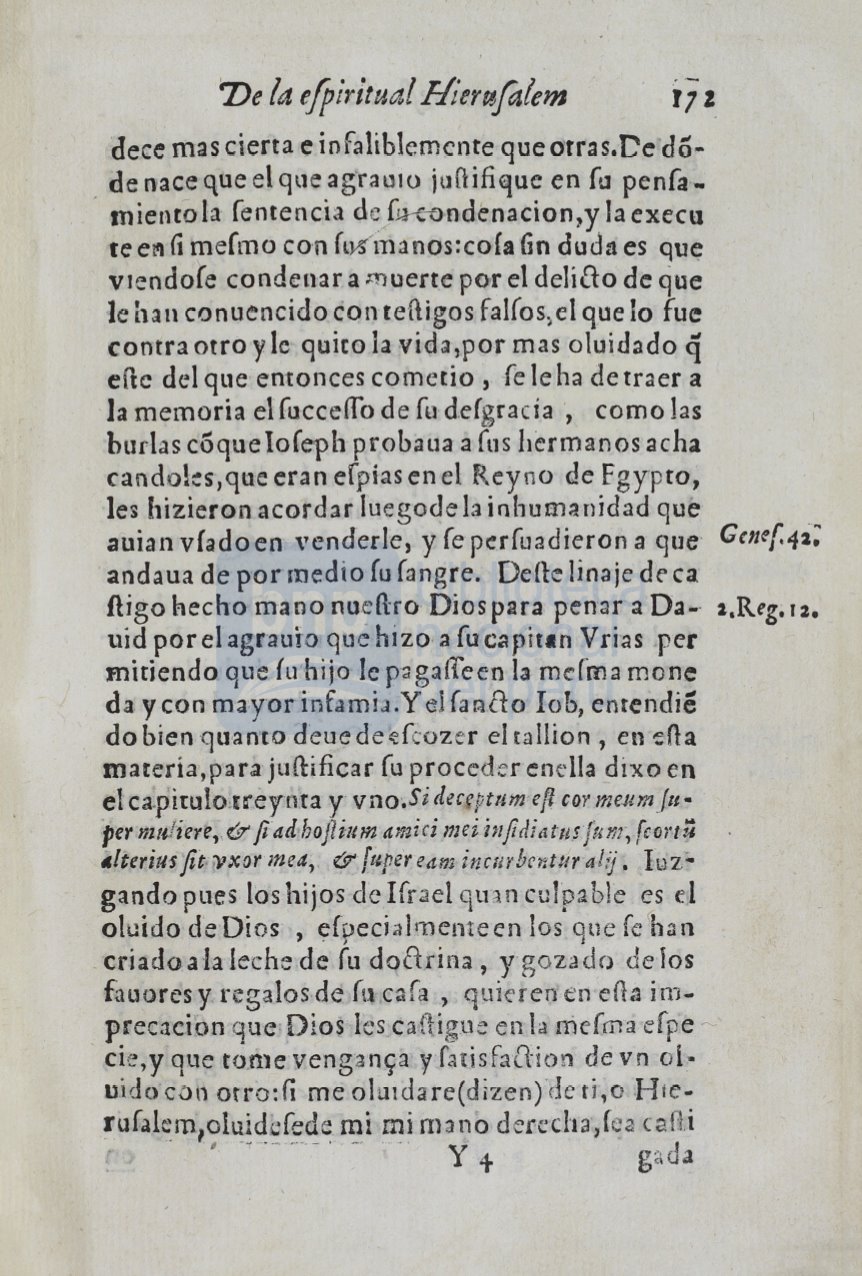 De la eſpiritual Hieruſalem 172
dece mas cierta e infaliblemente que otras. De dō-
de nace que el que agrauio juſtifique en ſu penſa-
miento la ſentencia de ſu condenacion, y la execu
te en ſi meſmo con ſus manos: coſa ſin duda es que
viendoſe condenar a muerte por el delicto de que
le han conuencido con teſtigos falſos, el que lo fue
contra otro y le quito la vida, por mas oluidado q̃
eſte del que entonces cometio, ſe le ha de traer a
la memoria el ſucceſſo de ſu deſgracia, como las
burlas cō que Ioſeph probaua a ſus hermanos acha
candoles, que eran eſpias en el Reyno de Egypto,
les hizieron acordar luego de la inhumanidad que
auian vſado en venderle, y ſe perſuadieron a que
Geneſ. 42.
andaua de por medio ſu ſangre. Deſte linaje de ca
ſtigo hecho mano nueſtro Dios para penar a Da-
2. Reg. 12.
uid por el agrauio que hizo a ſu capitan Vrias per
mitiendo que ſu hijo le pagaſſe en la meſma mone
da y con mayor infamia. Y el ſancto Iob, entendiē
do bien quanto deue de eſcozer el tallion, en eſta
materia, para juſtificar ſu proceder en ella dixo en
el capitulo treynta y vno. Si deceptum eſt cor meum ſu-
per muliere, & ſi ad hoſtium amici mei inſidiatus ſum, ſcortū
alterius ſit vxor mea, & ſuper eam incurbentur alij. Iuz-
gando pues los hijos de Iſrael quan culpable es el
oluido de Dios, eſpecialmente en los que ſe han
criado a la leche de ſu doctrina, y gozado de los
fauores y regalos de ſu caſa, quieren en eſta im-
precacion que Dios les caſtigue en la meſma eſpe
cie, y que tome vengança y ſatisfaction de vn ol-
uido con otro: ſi me oluidare (dizen) de ti, o Hie-
ruſalem, oluideſe de mi mi mano derecha, ſea caſti
Y 4 gada